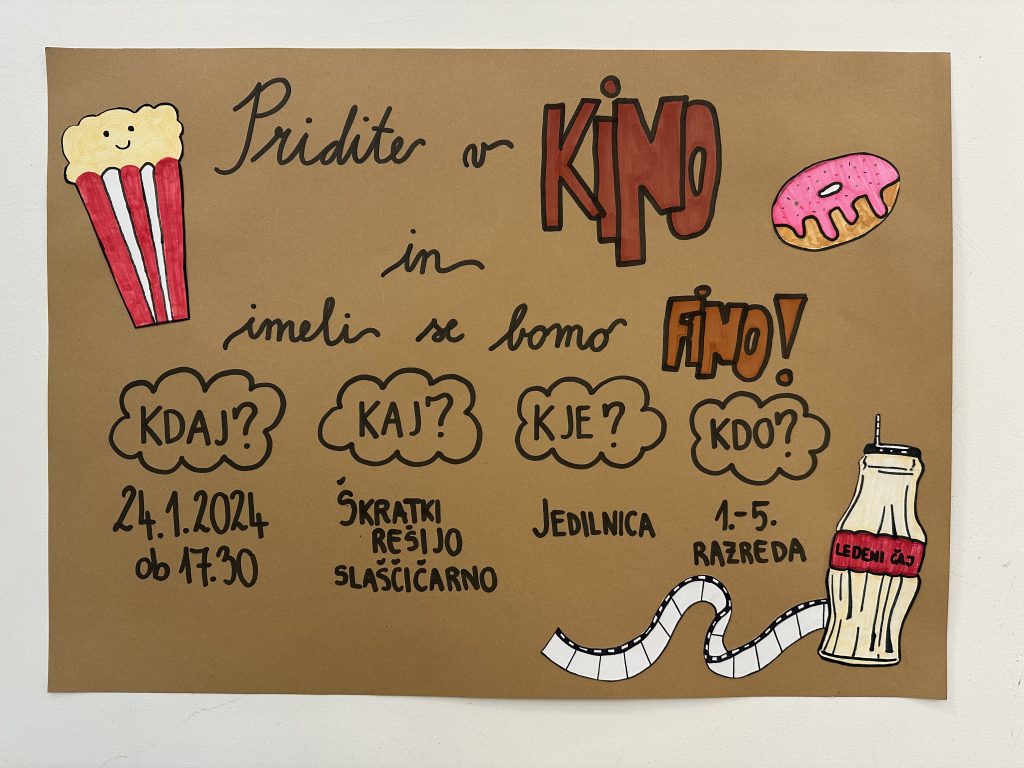 Pridite v KINO
in
imeli se bomo FINO!
KDAJ?
24.1.2024
ob 17.30
KAJ?
ŠKRATKI
REŠIJO
SLAŠČIČARNO
KJE?
JEDILNICA
KDO?
1.-5.
RAZREDA
LEDENI ČAJ